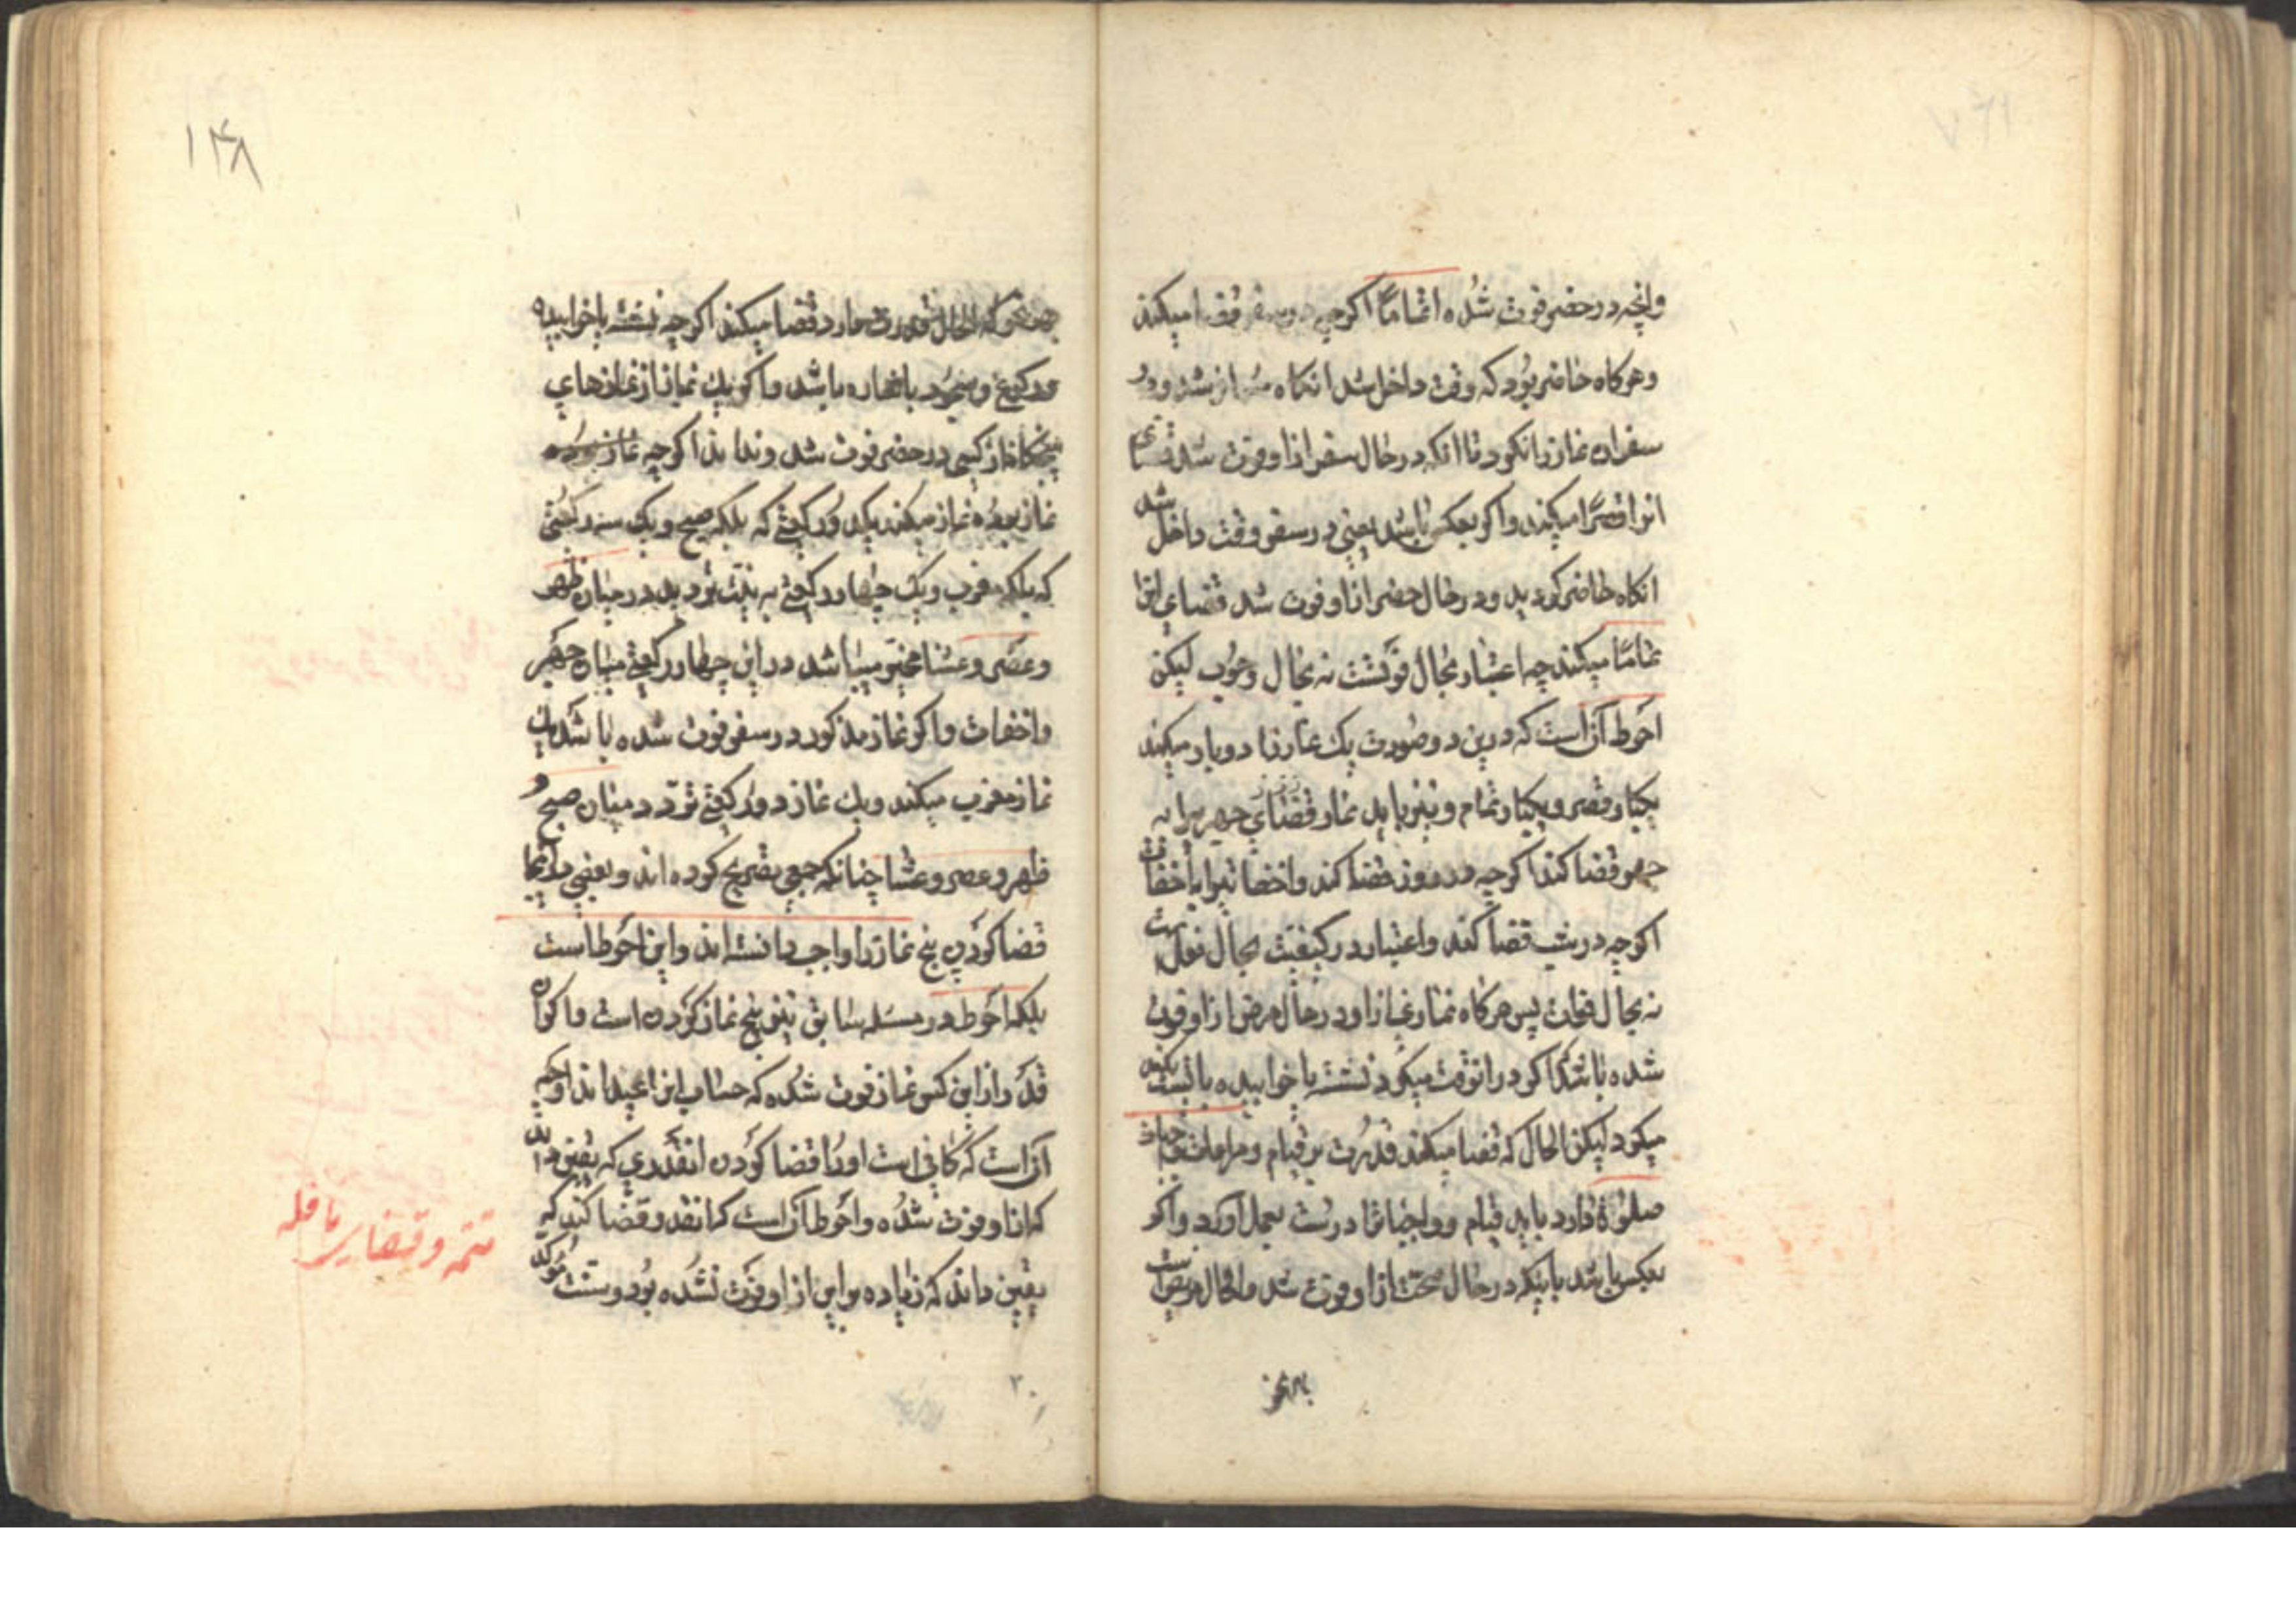 وانچه در حضر فوت شده اتماما اکرچه در سفر قضا میکند
و هرکاه حاضر بود که وقت داخل شد انکاه مسافر شد و در
سفر اداء نماز را نکرد تا انکه در حال سفر ازاو فوت شد قضای
انرا قصرا میکند و اکر بعکس باشد یعنی در سفر وقت داخل شد
انکاه حاضر کردید و در حال حضر ازاو فوت شد قضای انرا
تماما میکند چه اعتبار بحال فوتست نه بحال وجوب لیکن
احوط آنست که درین دو صورت یک نماز را دوبار میکند
یکبار قصر و یکبار تمام و نیز باید نماز قضای جهریرا به
جهر قضا کند اکرچه در روز قضا کند و اخفاتیرا باخفات
اکرچه در شب قضا کند و اعتبار در کیفیت بحال فعل است
نه بحال فوات پس هرکاه نماز ازاو در حال مرض ازاو فوت
شده باشد که اکر در انوقت میکرد نشسته یا خوابیده بایست بکند
میکرد لیکن الحال که قضا میکند قدرت بر قیام و مراعات واجبات
صلوة دارد باید قیام و واجباترا درست بعمل اورد و اکر
بعکس باشد باینکه در حال صحت ازاو فوت شد و الحال مریض است
بهر نحو
۱۴۸
بهر نحو که الحال قدرت دارد قضا میکند اکرچه نشسته یا خوابیده
و رکوع و سجود باشاره باشد و اکر یک نماز از نمازهای
پنجکانه از کسی در حضر فوت شد و نداند اکرچه نماز
نماز بوده نماز میکند یک دو رکعتی که بلکه صبح و یک سه رکعتی
که بلکه مغرب و یک چهار رکعتی به نیت تردید در میان ظهر
و عصر و عشا مخیر میباشد در این چهار رکعتی میان جهر
و اخفات و اکر نماز مذکور در سفر فوت شده باشد یک
نماز مغرب میکند و یک نماز دو رکعتی تردد میان صبح و
ظهر و عصر و عشا چنانکه جمعی تصریح کرده اند و بعضی در اینجا
قضا کردن پنج نماز را واجب دانسته اند و این احوط است
بلکه احوط در مسئله سابق نیز پنج نماز کردن است و اکر آن
قدر ازاین کس نماز فوت شده که حساب انرا نمیداند اوجه
آنست که کافی است اورا قضا کردن انقدری که یقین داند
که ازاو فوت شده و احوط آنست که انقدر قضا کند که
یقین داند که زیاده براین ازاو فوت نشده بود و سنت موکد
تتمه و قضای نافله
۲۰